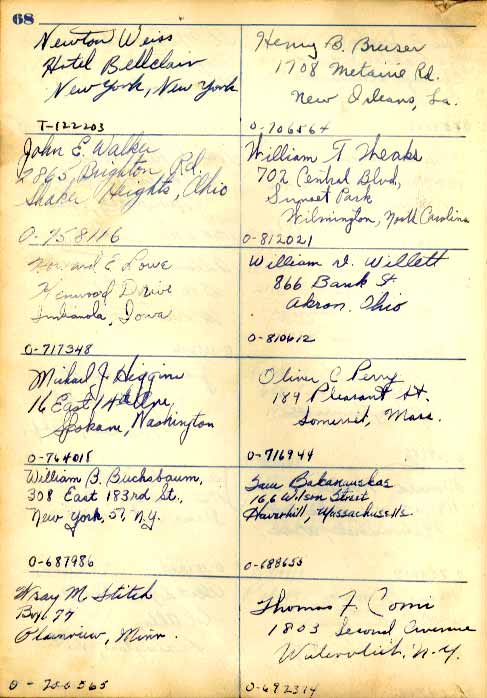 68
Newton Weiss
Hotel Bellclair
New York, New York
T-122203
Henry B. Breiser
1708 Metairie Rd.
New Orleans, La.
O-706564
John E. Walker
2865 Brighton Rd.
Shaker Heights, Ohio
O-758116
William T Meaks
702 Central Blvd,
Sunset Park
Wilmington, North Carolina
O-812021
Howard E. Lowe
Kenwood Drive
Indianola, Iowa
O-717348
William V. Willett
866 Bank St.
Akron, Ohio
O-810612
Michael J. Higgins
16 East 14th Ave,
Spokane, Washington
O-764015
Oliver C Perry
189 Pleasant St.
Somerset, Mass.
O-716944
William B. Buchsbaum,
308 East 183rd St.,
New York, 57, N.Y.
O-687986
Bakanauskas
166 Wilson Street
Haverhill, Massachusetts
O-688655
Wray M. Stitch
Box 77
Plainview, Minn.
O-
Thomas F. Comi
1803 Second Avenue
Watervliet, N.Y.
O-692314